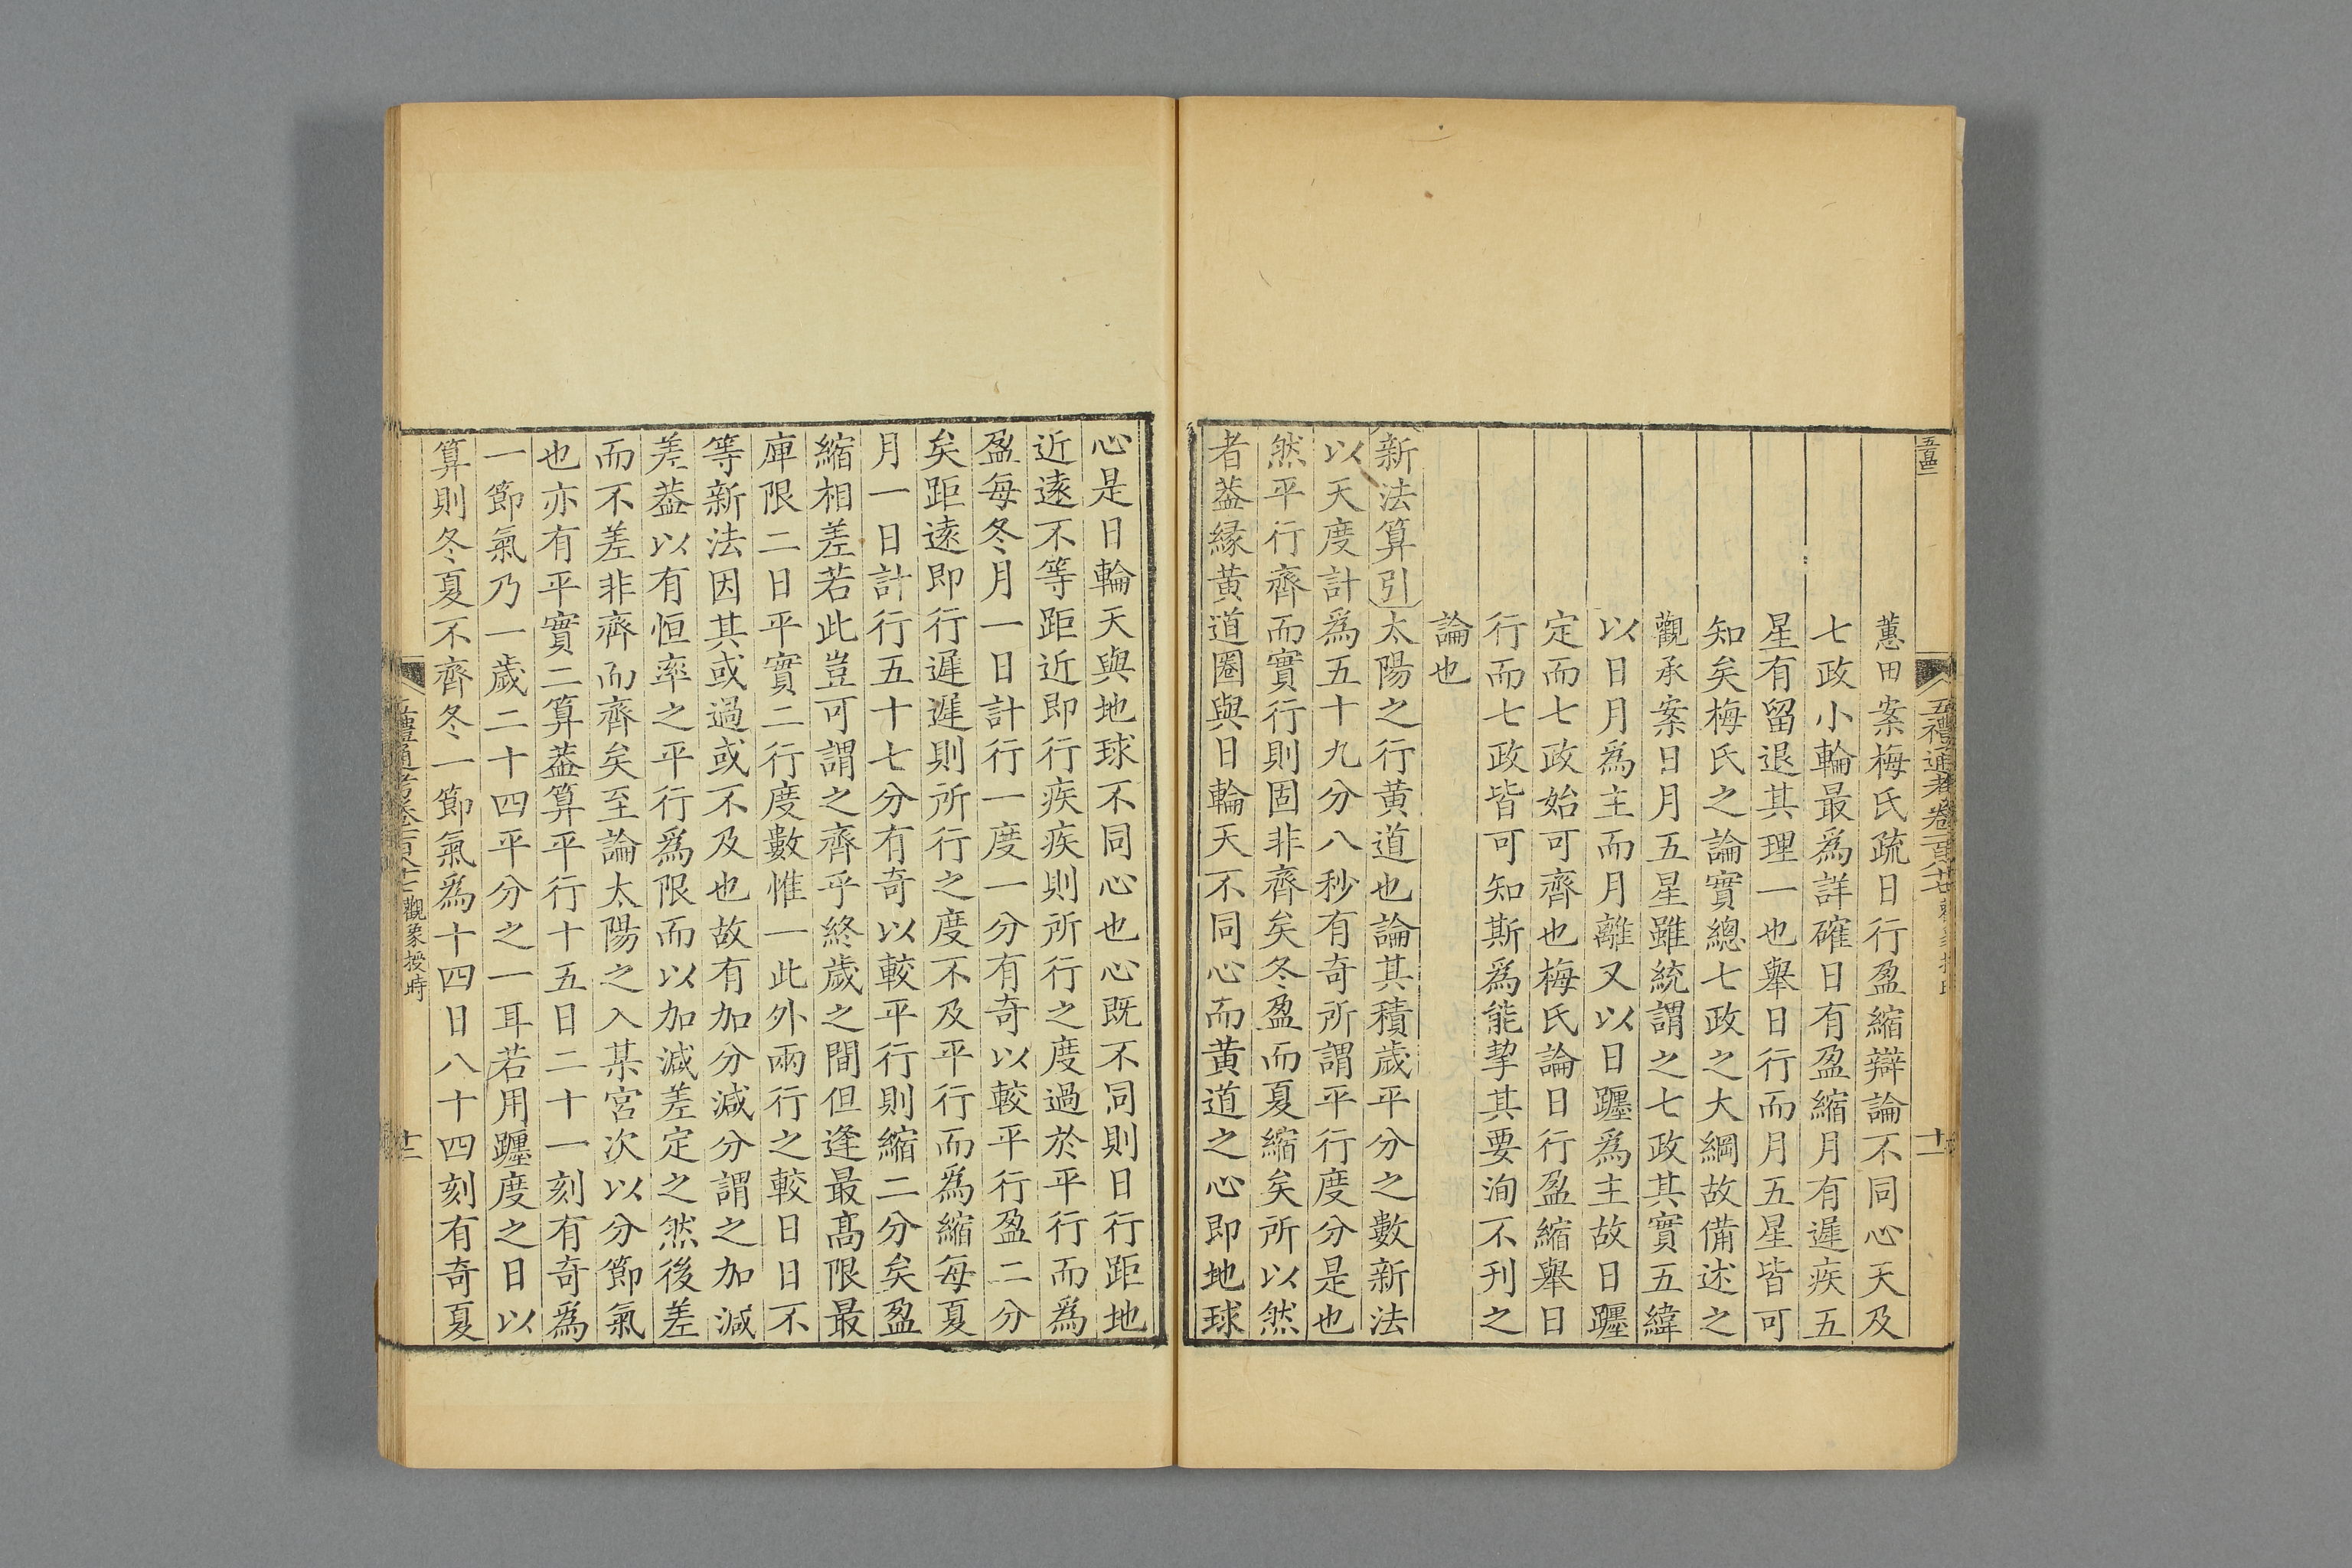 蕙田案梅氏疏日行盈縮辯論不同心天及
七政小輪最爲詳確日有盈縮月有遲疾五
星有留退其理一也舉日行而月五星皆可
知矣梅氏之論實總七政之大綱故備述之
觀承案日月五星雖統謂之七政其實五緯
以日月爲主而月離又以日躔爲主故日躔
定而七政始可齊也梅氏論日行盈縮舉日
行而七政皆可知斯爲能挈其要洵不刊之
論也
新法算引太陽之行黃道也論其積歲平分之數新法
以天度計爲五十九分八秒有奇所謂平行度分是也
然平行齊而實行則固非齊矣冬盈而夏縮矣所以然
者葢縁黃道圈與日輪天不同心而黃道之心即地球
心是日輪天與地球不同心也心既不同則日行距地
近逺不等距近即行疾疾則所行之度過於平行而爲
盈每冬月一日計行一度一分有奇以較平行盈二分
矣距逺即行遲遲則所行之度不及平行而爲縮每夏
月一日計行五十七分有奇以較平行則縮二分矣盈
縮相差若此豈可謂之齊乎終歲之間但逢最高限最
庳限二日平實二行度數惟一此外兩行之較日日不
等新法因其或過或不及也故有加分減分謂之加減
差葢以有恒率之平行爲限而以加減差定之然後差
而不差非齊而齊矣至論太陽之入某宮次以分節氣
也亦有平實二算葢算平行十五日二十一刻有奇爲
一節氣乃一歲二十四平分之一耳若用躔度之日以
算則冬夏不齊冬一節氣爲十四日八十四刻有奇夏
五禮通考卷一百八十七
十一
觀象授時
十二